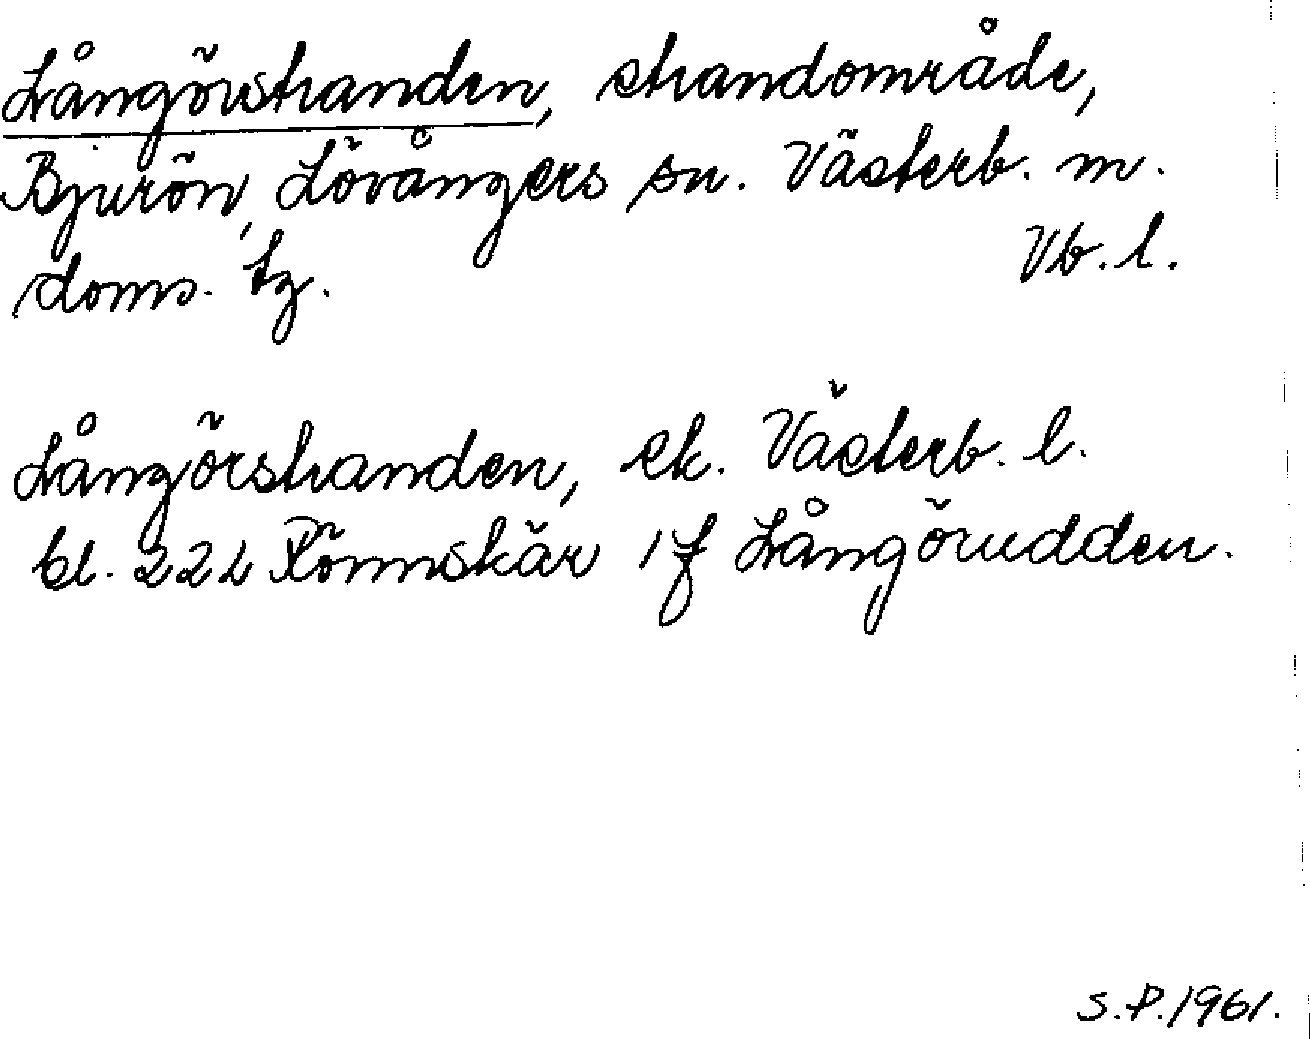 Långörstranden, strandområde,
Bjurön, Lövångers sn. Västerb. m.
doms. tg. Vb. l.
Långörstranden, ek. Västerb. l.
bl. 22 L Rönnskär 1 f Långörudden.
S.P. 1961.